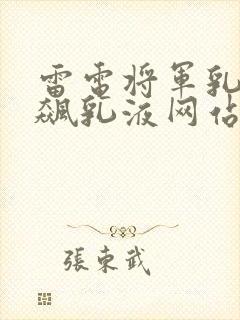 雷电将军乳
飙乳液网站
張東武